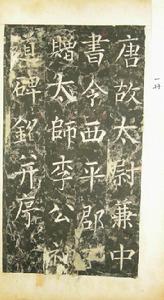 唐故太尉兼中
書令西平郡
贈太師李公神
道碑銘并序